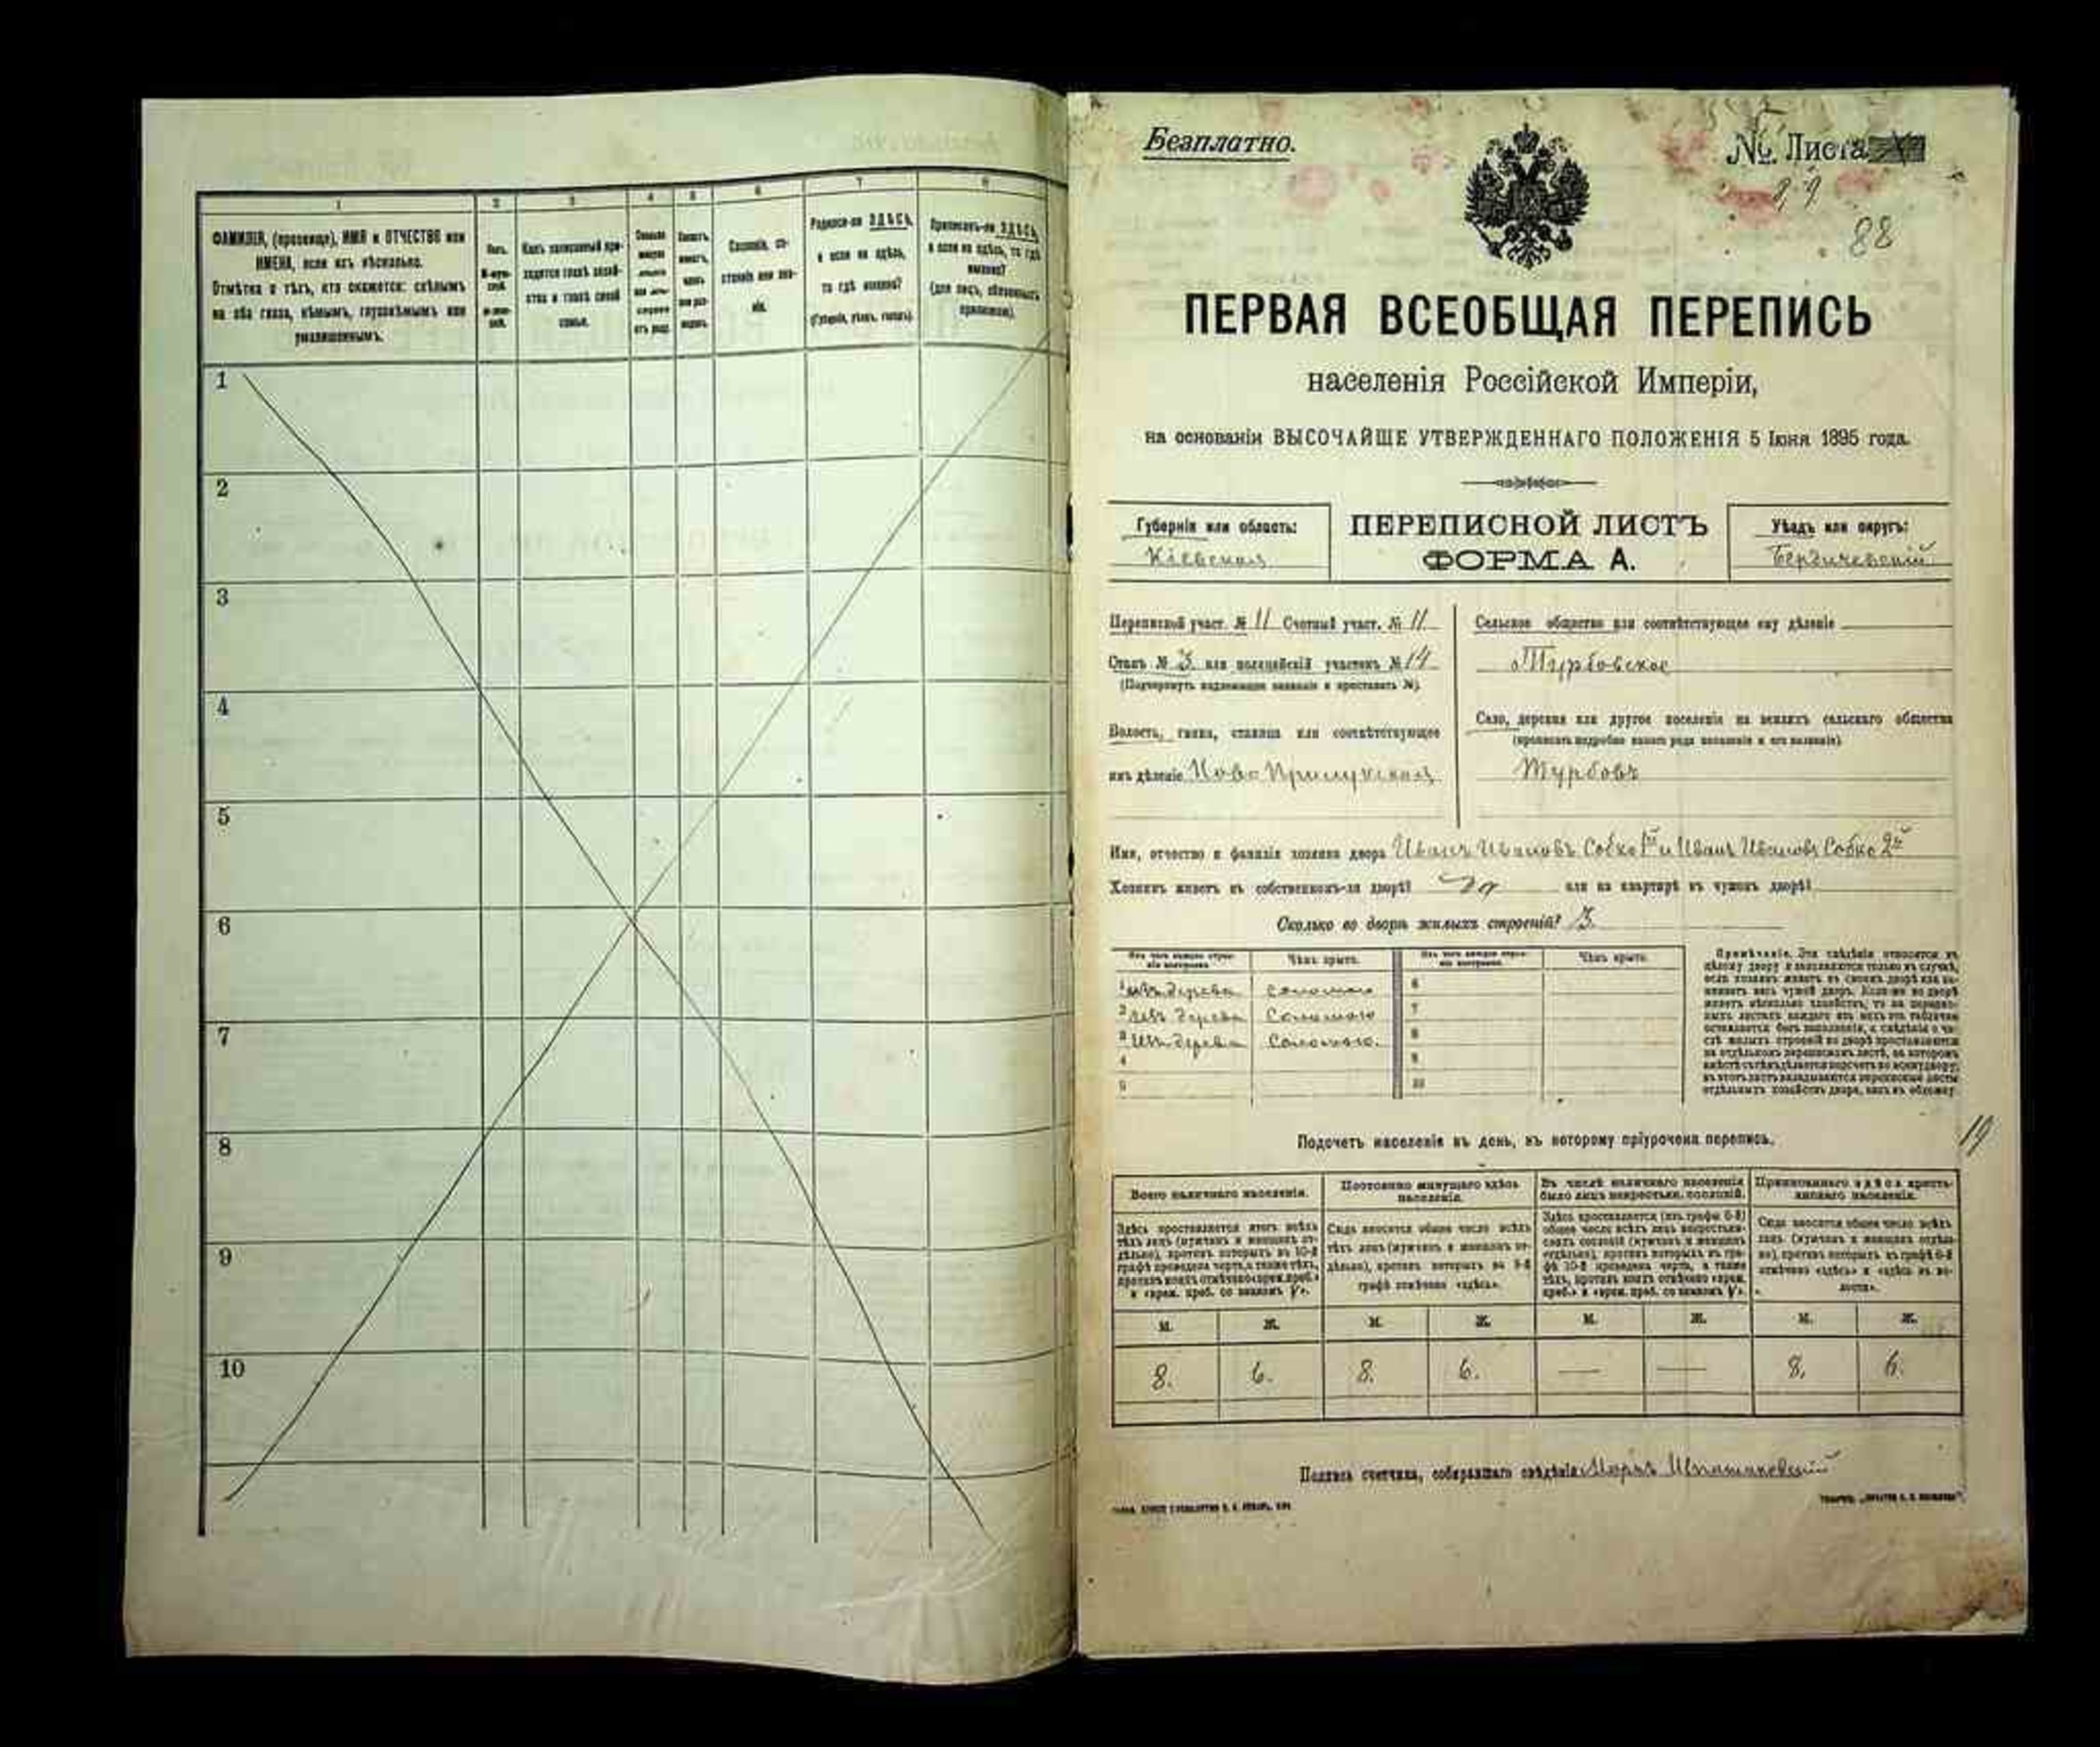 1 2 3 4 5 6 7 8
ФАМИЛІЯ, (прозвище), ИМЯ и ОТЧЕСТВО или
ИМЕНА, если ихъ нѣсколько.
Отмѣтка о тѣхъ, кто окажется: слѣпымъ
на оба глаза, нѣмымъ, глухонѣмымъ или
умалишеннымъ.
Полъ.
Какъ записанный при-
ходится главѣ хозяй-
ства и главѣ своей
семьи.
Сословіе, со-
стояніе или зва-
ніе.
Родился-ли ЗДѢСЬ,
а если не здѣсь,
то гдѣ именно?
(Губернія, уѣздъ, городъ).
Приписанъ-ли ЗДѢСЬ,
а если не здѣсь, то гдѣ
именно?
(для лицъ, обязанныхъ
припискою).
1
2
3
4
5
6
7
8
9
10
Безплатно.
№ Листа
88
ПЕРВАЯ ВСЕОБЩАЯ ПЕРЕПИСЬ
населенія Россійской Имперіи,
на основаніи ВЫСОЧАЙШЕ УТВЕРЖДЕННАГО ПОЛОЖЕНІЯ 5 Іюня 1895 года.
Губернія или область:
Кіевская
ПЕРЕПИСНОЙ ЛИСТЪ
ФОРМА А.
Уѣздъ или округъ:
Бердичевскій
Переписной участ. № 11 Счетный участ. № 11
Станъ № 3 или полицейскій участокъ № 14
(Подчеркнуть надлежащее названіе и проставить №).
Волость, гмина, станица или соотвѣтствующее
имъ дѣленіе Ново Прилукская
Сельское общество или соотвѣтствующее ему дѣленіе
Турбовское
Село, деревня или другое поселеніе на земляхъ сельскаго общества
(прописать подробно какого рода поселеніе и его названіе)
Турбовъ
Имя, отчество и фамилія хозяина двора Иванъ Ивановъ Собко 1й и Иванъ Ивановъ Собко 2й
Хозяинъ живетъ въ собственномъ-ли дворѣ? да или на квартирѣ въ чужомъ дворѣ?
Сколько во дворѣ жилыхъ строеній? 3
Изъ чего каждое строе-
ніе построено. Чѣмъ крыто. Изъ чего каждое строе-
ніе построено. Чѣмъ крыто.
1 изъ дерева соломою 6
2 изъ дерева Соломою 7
3 Изъ дерева Соломою. 8
4 9
5 10
Примѣчаніе. Эти свѣдѣнія относятся къ
цѣлому двору и заполняются только въ случаѣ,
если хозяинъ живетъ въ своемъ дворѣ или за-
нимаетъ весь чужой дворъ. Если-же во дворѣ
живетъ нѣсколько хозяйствъ, то на перепис-
ныхъ листахъ каждаго изъ нихъ эта табличка
оставляется безъ заполненія, а свѣдѣнія о чи-
слѣ жилыхъ строеній во дворѣ проставляются
на отдѣльномъ переписномъ листѣ, на которомъ
вмѣстѣ съ тѣмъ дѣлается подсчетъ по всему двору;
въ этотъ листъ вкладываются переписные листы
отдѣльныхъ хозяйствъ двора, какъ въ обложку.
19
Подсчетъ населенія въ день, къ которому пріурочена перепись.
Всего наличнаго населенія.
Здѣсь проставляется итогъ всѣхъ
тѣхъ лицъ (мужчинъ и женщинъ от-
дѣльно), противъ которыхъ въ 10-й
графѣ проведена черта, а также тѣхъ,
противъ коихъ отмѣчено «врем. преб.»
и «врем. преб. со знакомъ V».
Постоянно живущаго здѣсь
населенія.
Сюда вносится общее число всѣхъ
тѣхъ лицъ (мужчинъ и женщинъ от-
дѣльно), противъ которыхъ въ 9-й
графѣ отмѣчено «здѣсь».
Въ числѣ наличнаго населенія
было лицъ некрестьян. сословій.
Здѣсь проставляется (изъ графы 6-й)
общее число всѣхъ лицъ некрестьян-
скихъ сословій (мужчинъ и женщинъ
отдѣльно), противъ которыхъ въ гра-
фѣ 10-й проведена черта, а также
тѣхъ, противъ коихъ отмѣчено «врем.
преб.» и «врем. преб. со знакомъ V».
Приписаннаго здѣсь кресть-
янскаго населенія.
Сюда вносится общее число всѣхъ
лицъ (мужчинъ и женщинъ отдѣль-
но), противъ которыхъ въ графѣ 8-й
отмѣчено «здѣсь» и «здѣсь въ во-
лости».
М. Ж. М. Ж. М. Ж. М. Ж.
8. 6. 8. 6. — — 8. 6.
Подпись счетчика, собиравшаго свѣдѣнія